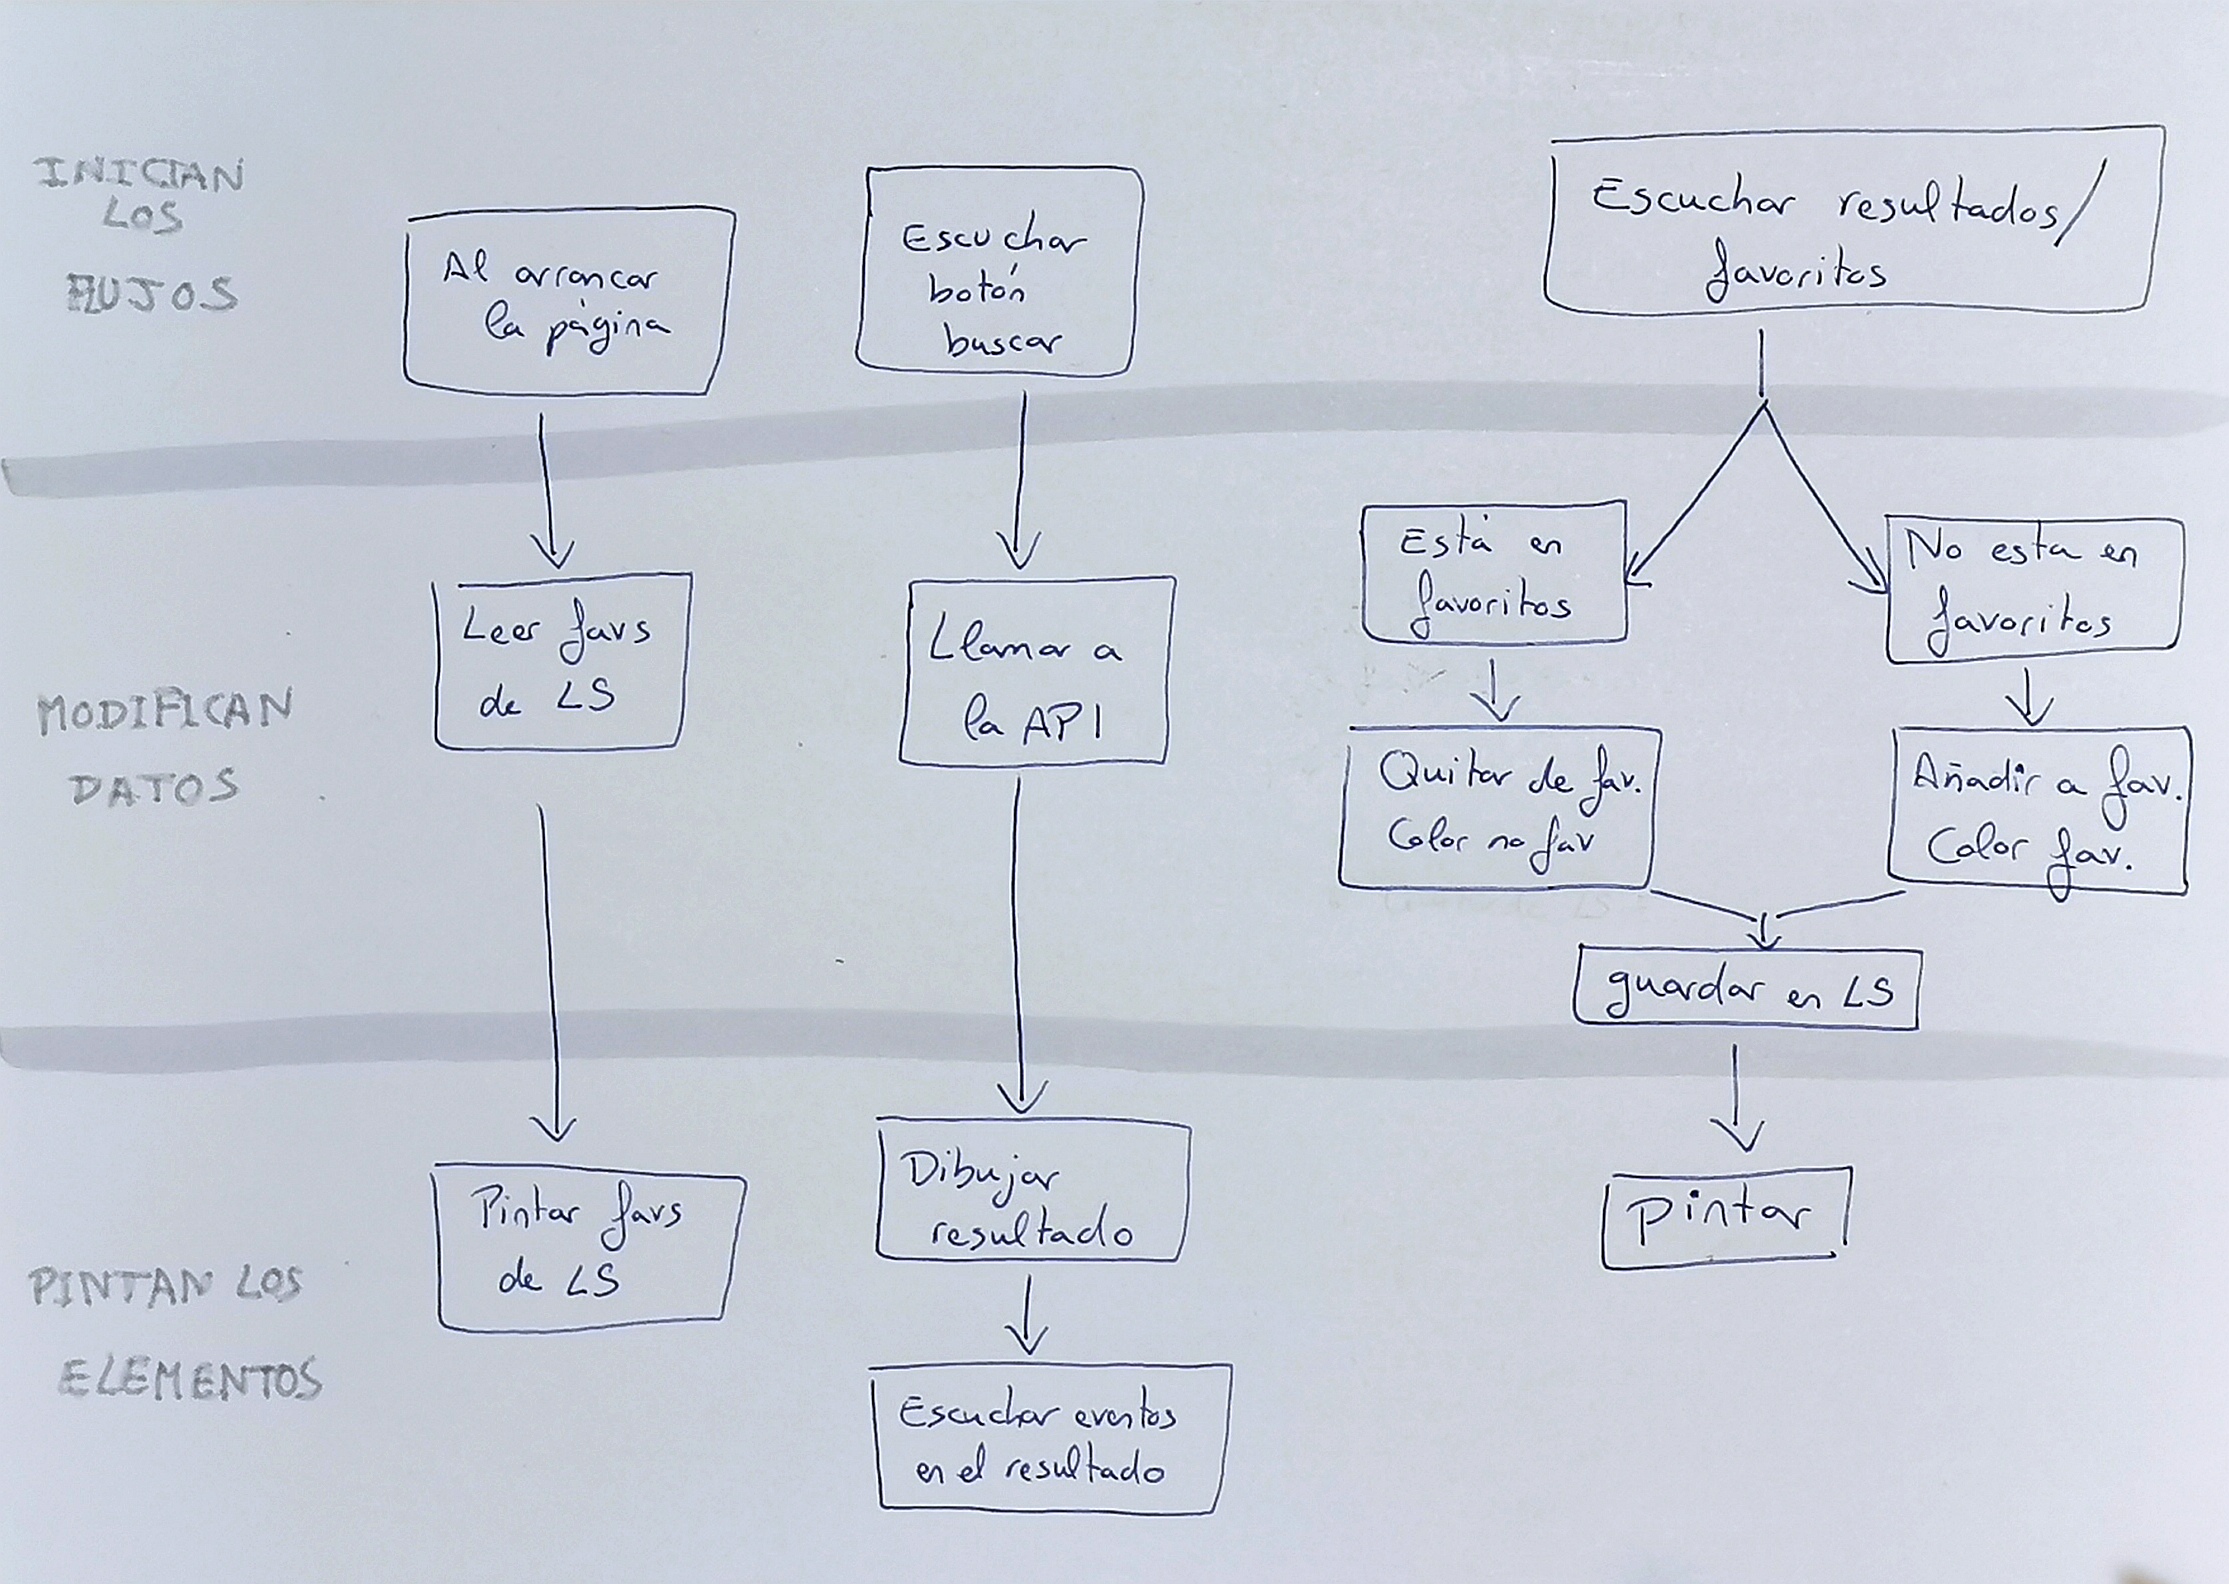 INICIAN
LOS
FLUJOS
Al arrancar
la página
Escuchar
botón
buscar
Escuchar resultados/
favoritos
MODIFICAN
DATOS
Leer favs
de LS
Llamar a
la API
Está en
favoritos
No esta en
favoritos
Quitar de fav.
Color no fav
Añadir a fav.
Color fav.
guardar en LS
PINTAN LOS
ELEMENTOS
Pintar favs
de LS
Dibujar
resultado
Escuchar eventos
en el resultado
Pintar